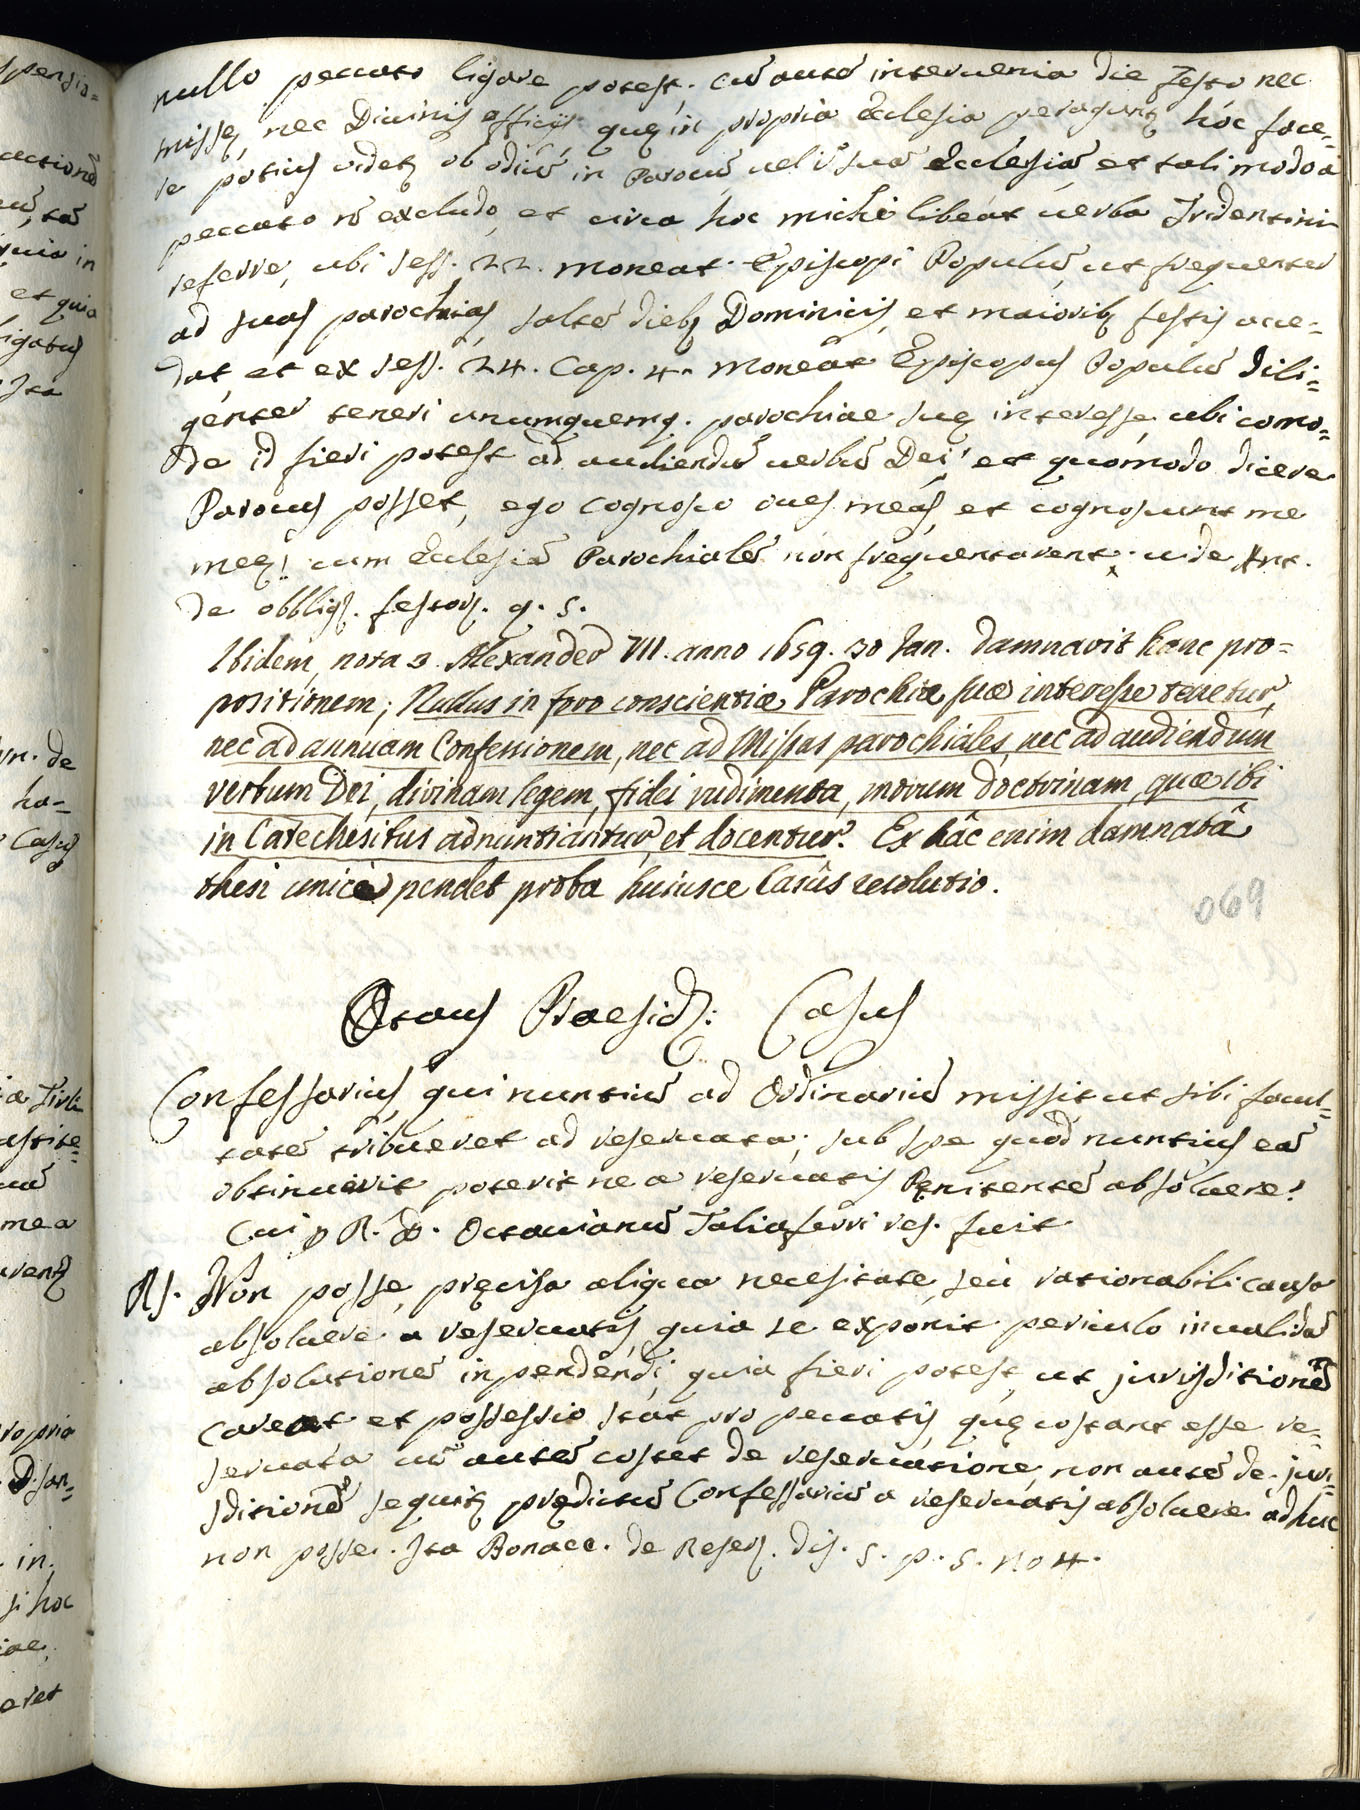 nullo peccato ligare potest. cū autē interuenia die Festo nec
missę, nec Diuinis officijs quę in propria Ecclesia peragunt hoc face=
re potius videtʒ ob odiū in Parocū uel ī suā Ecclesiā, et tali modo à
peccato nō excludo, et circa hoc michi libeat uerba Tridentini
referre, ubi sess. 22. moneat Episcopi Populū ut frequenter
ad suas parochias, saltē diebʒ Dominicis, et maioribʒ festis acce=
dat et ex sess. 24. Cap. 4. Moneat Episcopus Populū dili=
genter teneri unumquemq. parochiae suę interesse ubi como=
de id fieri potest ad audiendū uerbū Dei et quomodo dicere
Parocus posset, ego cognosco oues meas, et cognoscunt me
meę! cum Ecclesiā Parochialē non frequentarent. uide Ant.
de obblig. festorʒ. q. 5.
Ibidem, nota 3. Alexander VII. anno 1659. 30 Jan. damnavit hanc pro=
positionem; Nullus in foro conscientiæ Parochiæ suæ interesse tenetur,
nec ad annuam Confessionem, nec ad Missas parochiales, nec ad audiendum
verbum Dei, divinam legem, fidei rudimenta, morum doctrinam, quæ ibi
in Catechesibus adnuntiantur, et docentur. Ex hâc enim damnatâ
thesi unicè pendet proba huiusce Casûs resolutio.
069
Octauus Praesidʒ: Casus
Confessarius, qui nuntiū ad Ordinariū missit ut sibi facul=
tatē tribueret ad reseruata; sub spe quod nuntius eā
obtinuerit poterit ne a reseruatis Pęnitentē absoluere?
Cui p R. D. Octauianū Taliaferri res. fuit
Rs. Non posse, pręcisa aliqua necesitate, seù rationabili causa
absoluere a reseruatis, quia se exponit periculo inualidā
absolutionē inpendendi, quia fieri potest, ut jurisditionē
careat et possessio stat pro peccatis, quę costant esse re=
seruata cū autē costet de reseruatione, non autē de juri=
sditionē sequitʒ prędictū Confessariū a reseruatis absoluere adhuc
non posse. Ita Bonacc. de Reserʒ. dis. 5. p. 5. no 4.